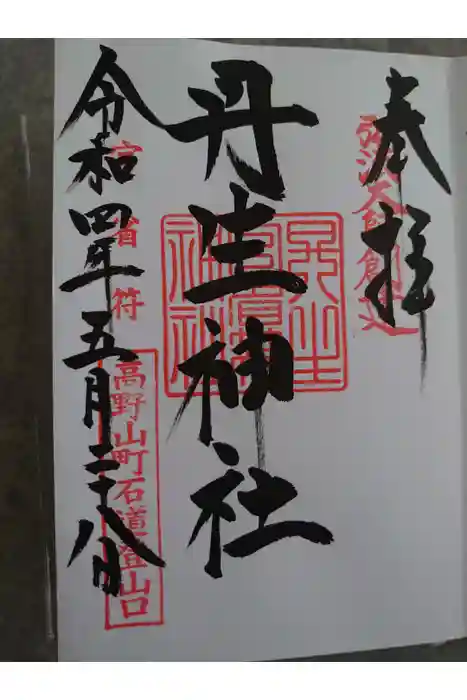 奉拝
弘法大師創建
丹生神社
丹生官省符神社
令和四年五月二十八日
官省符
高野山町石道登山口